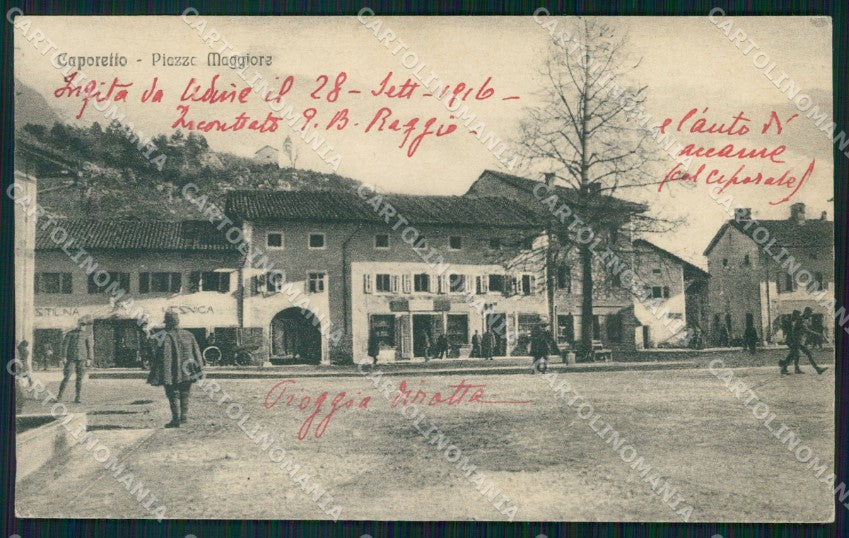 Caporetto - Piazza Maggiore
Ingita da Udine il 28 - Sett - 1916 -
Incontrato P. B. Raggio -
e l'auto di
(col Ceporale)
STILNA
ESVICA
Pioggia dirotta
CARTOLINOMANIA